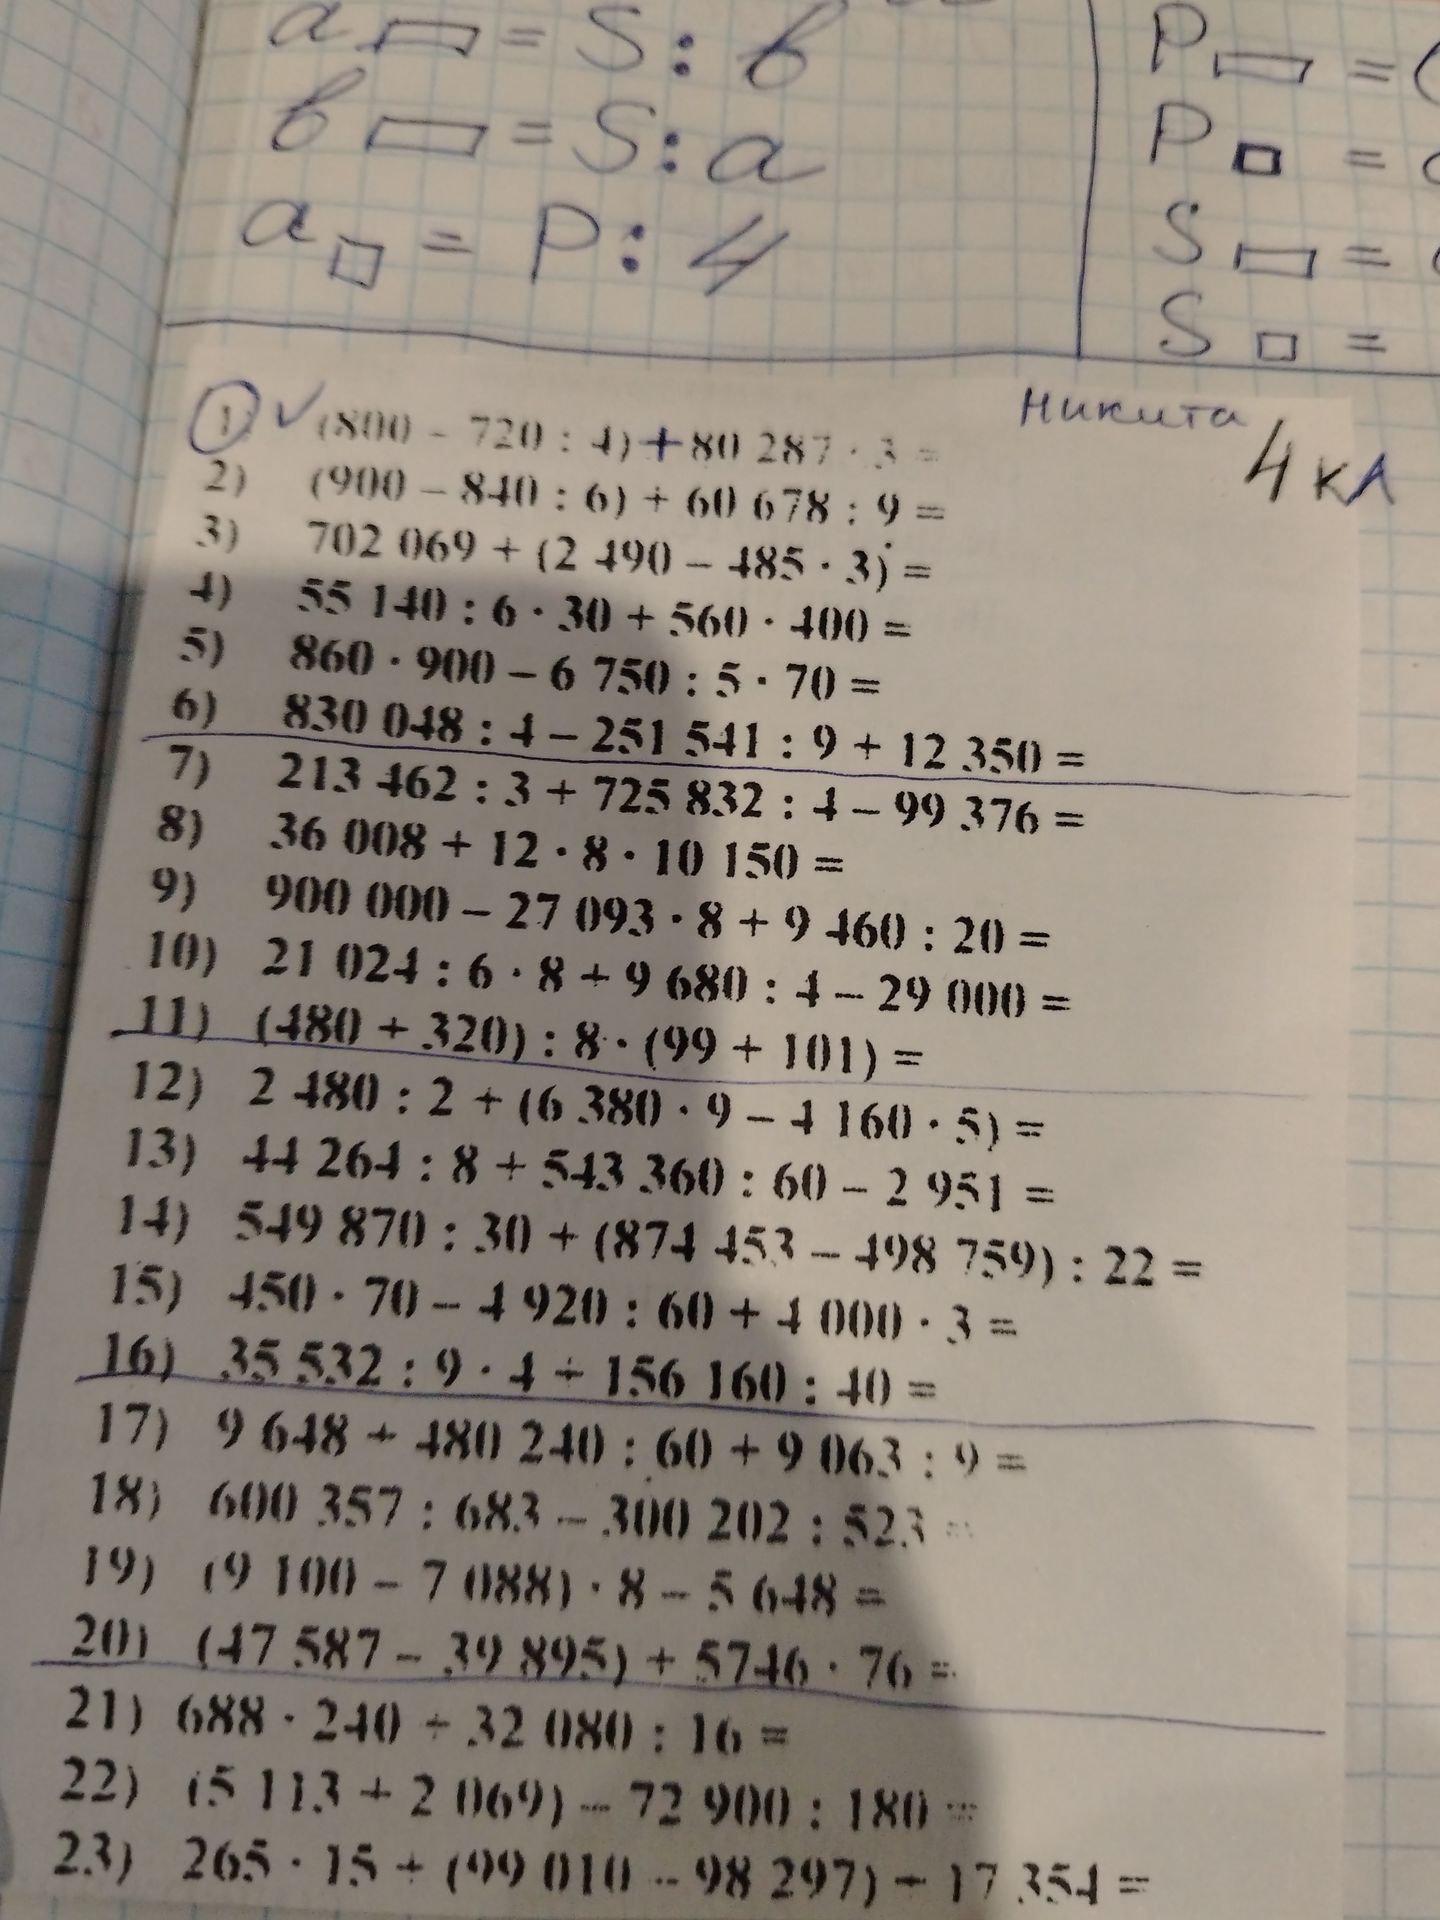 a▭ = S : b
b▭ = S : a
a□ = P : 4
P▭ = (
P□ =
S▭ =
S□ =
Никита
4 кл
1) ✓ (800 – 720 : 4) + 80 287 · 3 =
2) (900 – 840 : 6) + 60 678 : 9 =
3) 702 069 + (2 490 – 485 · 3) =
4) 55 140 : 6 · 30 + 560 · 400 =
5) 860 · 900 – 6 750 : 5 · 70 =
6) 830 048 : 4 – 251 541 : 9 + 12 350 =
7) 213 462 : 3 + 725 832 : 4 – 99 376 =
8) 36 008 + 12 · 8 · 10 150 =
9) 900 000 – 27 093 · 8 + 9 460 : 20 =
10) 21 024 : 6 · 8 + 9 680 : 4 – 29 000 =
11) (480 + 320) : 8 · (99 + 101) =
12) 2 480 : 2 + (6 380 · 9 – 4 160 · 5) =
13) 44 264 : 8 + 543 360 : 60 – 2 951 =
14) 549 870 : 30 + (874 453 – 498 759) : 22 =
15) 450 · 70 – 4 920 : 60 + 4 000 · 3 =
16) 35 532 : 9 · 4 + 156 160 : 40 =
17) 9 648 + 480 240 : 60 + 9 063 : 9 =
18) 600 357 : 683 – 300 202 : 523 =
19) (9 100 – 7 088) · 8 – 5 648 =
20) (47 587 – 39 895) + 5746 · 76 =
21) 688 · 240 + 32 080 : 16 =
22) (5 113 + 2 069) – 72 900 : 180 =
23) 265 · 15 + (99 010 – 98 297) + 17 354 =